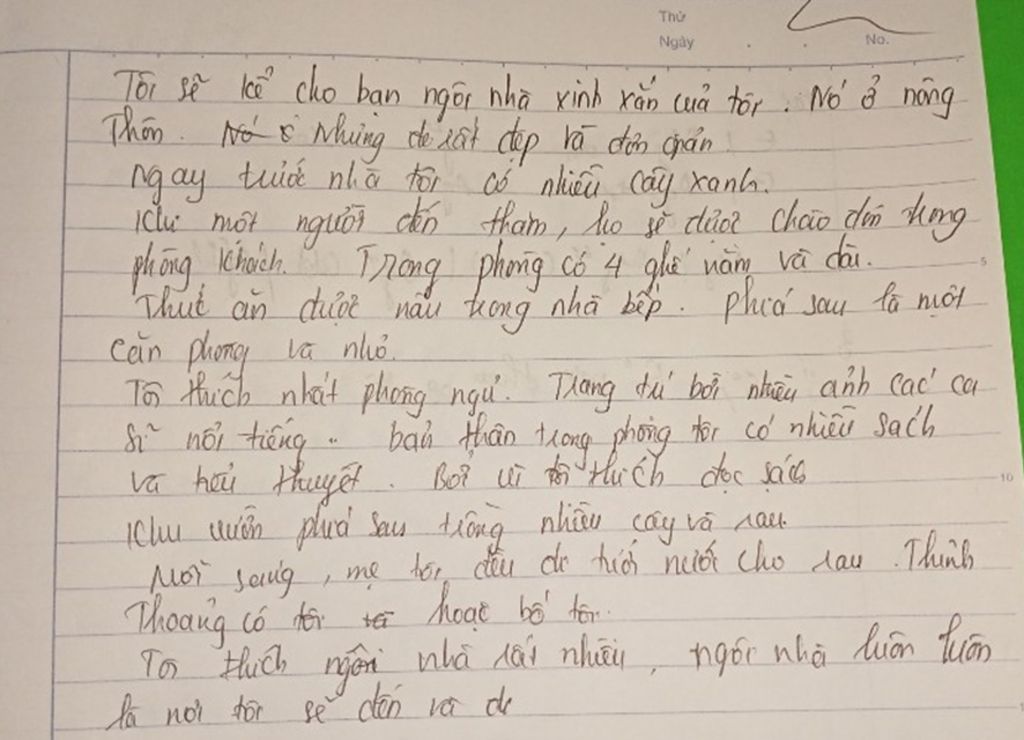 Thứ
Ngày . . No.
Tôi sẽ kể cho bạn ngôi nhà xinh xắn của tôi. Nó ở nông
Thôn. Nó ở Nhưng rất đẹp và đơn giản.
Ngay trước nhà tôi có nhiều cây xanh.
Khi một người đến thăm, họ sẽ được chào đón trong
phòng khách. Trong phòng có 4 ghế nằm và dài.
Thức ăn được nấu trong nhà bếp. Phía sau là một
căn phòng và nhỏ.
Tôi thích nhất phòng ngủ. Trang trí bởi nhiều ảnh các ca
sĩ nổi tiếng .. bản thân trong phòng tôi có nhiều sách
và tiểu thuyết. Bởi vì tôi thích đọc sách
Khu vườn phía sau trồng nhiều cây và rau.
Mỗi sáng, mẹ tôi đều đi tưới nước cho rau. Thỉnh
Thoảng có tôi hoặc bố tôi.
Tôi thích ngôi nhà rất nhiều, ngôi nhà luôn luôn
là nơi tôi sẽ đến và đi